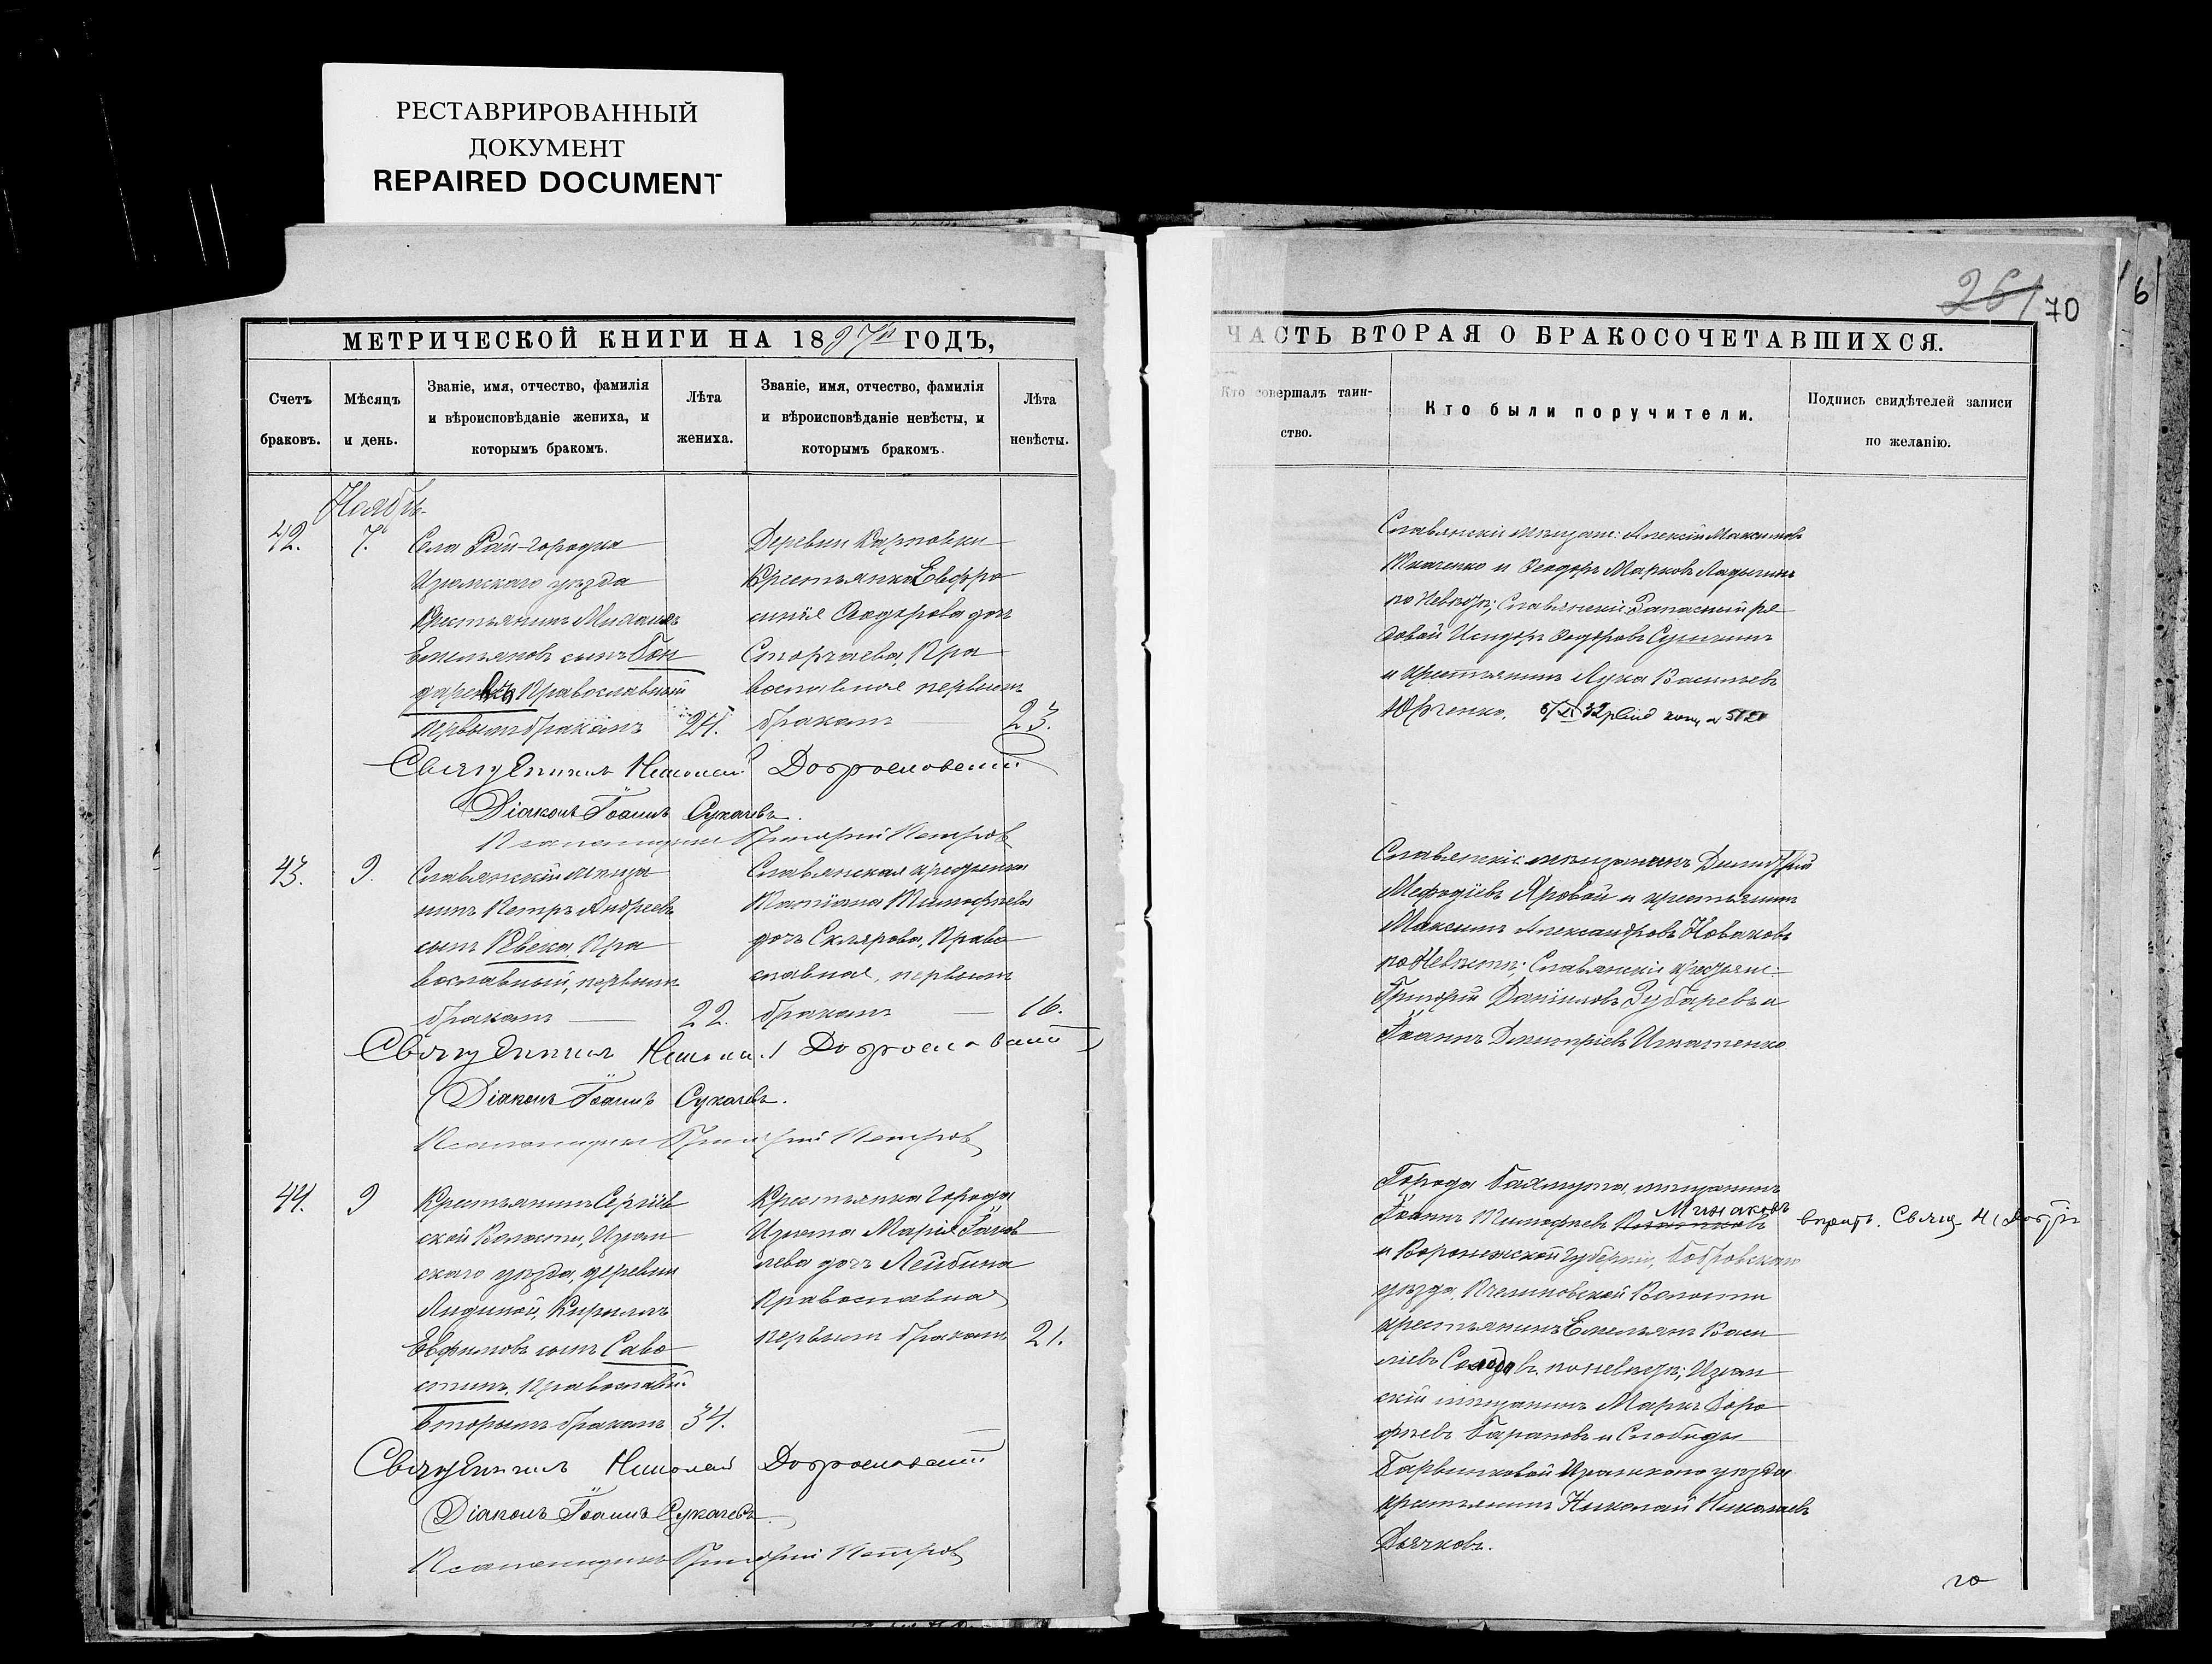 РЕСТАВРИРОВАННЫЙ
ДОКУМЕНТ
REPAIRED DOCUMENT
МЕТРИЧЕСКОЙ КНИГИ НА 1897й ГОДЪ,
Счетъ браковъ.
Мѣсяцъ и день.
Званіе, имя, отчество, фамилія
и вѣроисповѣданіе жениха, и
которымъ бракомъ.
Лѣта жениха.
Званіе, имя, отчество, фамилія
и вѣроисповѣданіе невѣсты, и
которымъ бракомъ.
Лѣта невѣсты.
Ноябрь
42.
7.
Села Рай-городка
Изюмскаго уѣзда
Крестьянинъ Михаилъ
Емельяновъ сынъ Бон
даренко Православный
первымъ бракомъ
24.
Деревни Карповки
Крестьянка Евфро
синія Ѳеодорова дочь
Православная первымъ
бракомъ
23.
Священникъ Николай Доброславскій
Діаконъ Іоаннъ Сукачевъ.
Псаломщикъ Григорій Петровъ
43.
9.
Славянскій мѣща
нинъ Петръ Андреевъ
сынъ Пра
вославный, первымъ
бракомъ
22.
Славянская крестьянка
Татіана Тимофеева
дочь Склярова, Право
славная, первымъ
бракомъ
16.
Священникъ Николай Доброславскій
Діаконъ Іоаннъ Сукачевъ.
Псаломщикъ Григорій Петровъ
44.
9
Крестьянинъ Сергіев
ской Волости, Изюм
скаго уѣзда, деревни
Кириллъ
Евфимовъ сынъ Саво
стинъ, Православный
вторымъ бракомъ
34.
Крестьянка города
Изюма Марія Іаков
лева дочь Лейбина
Православная
первымъ бракомъ
21.
Священникъ Николай Доброславскій
Діаконъ Іоаннъ Сукачевъ.
Псаломщикъ Григорій Петровъ
261
70
6
ЧАСТЬ ВТОРАЯ О БРАКОСОЧЕТАВШИХСЯ.
Кто совершалъ таин-
ство.
Кто были поручители.
Подпись свидѣтелей записи
по желанію.
Славянскіе мѣщане: Алексій Максимовъ
Ткаченко и Ѳеодоръ Марковъ Ладыгинъ
по невѣстѣ; Славянскій Запасный ря
довой Исидоръ Ѳедоровъ
и крестьянинъ Лука Васильевъ
Юрченко.
Славянскіе мѣщанинъ Димитрій
Мефодіевъ Яровой и крестьянинъ
Максимъ Александровъ Новаковъ
по Невѣстѣ; Славянскіе крестьяне:
Григорій Даніиловъ Зубаревъ и
Іоаннъ Димитріевъ Игнатенко.
Города Бахмута, мѣщанинъ
Минаковъ
Іоаннъ Тимофеевъ
и Воронежской губерніи, Бобровскаго
уѣзда, Волости
крестьянинъ Емельянъ Васи
ліевъ по невѣстѣ; Изюм
скій мѣщанинъ Маркъ Доро
феевъ Барановъ и Слободы
Барвинковой Изюмскаго уѣзда
крестьянинъ Николай Николаевъ
Дьячковъ.